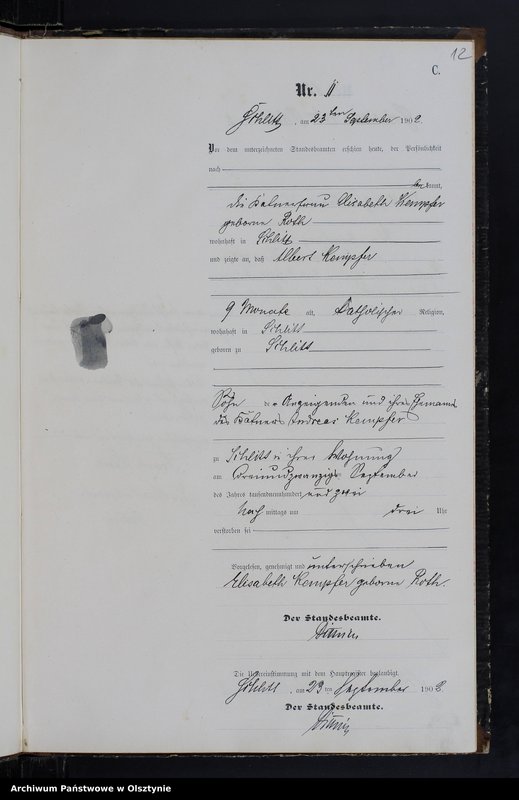 12
C.
Nr. 11
Schlitt, am 23ten September 1902.
Vor dem unterzeichneten Standesbeamten erschien heute, der Persönlichkeit
nach
bekannt,
die Kätnerfrau Elisabeth Kempfer
geborne Roth
wohnhaft in Schlitt
und zeigte an, daß Albert Kempfer
9 Monate alt, Katholischer Religion,
wohnhaft in Schlitt
geboren zu Schlitt
Sohn der Anzeigenden und ihres Ehemannes
des Kätners Andreas Kempfer
zu Schlitt in ihrer Wohnung
am dreiundzwanzigsten September
des Jahres tausendneunhundert und zwei
Nachmittags um drei Uhr
verstorben sei
Vorgelesen, genehmigt und unterschrieben
Elisabeth Kempfer geborne Roth.
Der Standesbeamte.
Die Übereinstimmung mit dem Hauptregister beglaubigt.
Schlitt, am 23ten September 1902.
Der Standesbeamte.
Archiwum Państwowe w Olsztynie